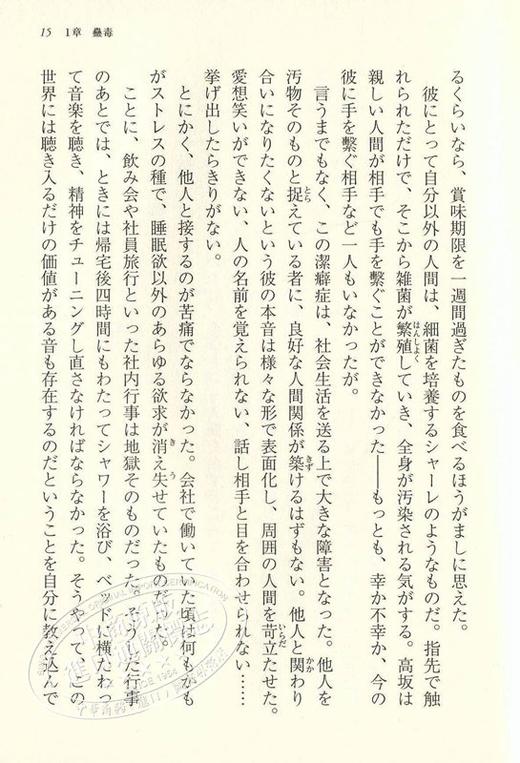 15　1章　蠱毒
るくらいなら、賞味期限を一週間過ぎたものを食べるほうがましに思えた。
彼にとって自分以外の人間は、細菌を培養するシャーレのようなものだ。指先で触
れられただけで、そこから雑菌が繁殖していき、全身が汚染される気がする。高坂は
はんしょく
親しい人間が相手でも手を繫ぐことができなかった――もっとも、幸か不幸か、今の
彼に手を繫ぐ相手など一人もいなかったが。
言うまでもなく、この潔癖症は、社会生活を送る上で大きな障害となった。他人を
汚物そのものと捉えている者に、良好な人間関係が築けるはずもない。他人と関わり
とら
きず
かか
合いになりたくないという彼の本音は様々な形で表面化し、周囲の人間を苛立たせた。
いらだ
愛想笑いができない、人の名前を覚えられない、話し相手と目を合わせられない……
挙げ出したらきりがない。
とにかく、他人と接するのが苦痛でならなかった。会社で働いていた頃は何もかも
がストレスの種で、睡眠欲以外のあらゆる欲求が消え失せていたものだった。
き
う
ことに、飲み会や社員旅行といった社内行事は地獄そのものだった。そうした行事
のあとでは、ときには帰宅後四時間にもわたってシャワーを浴び、ベッドに横たわっ
て音楽を聴き、精神をチューニングし直さなければならなかった。そうやって、この
世界には聴き入るだけの価値がある音も存在するのだということを自分に教え込んで